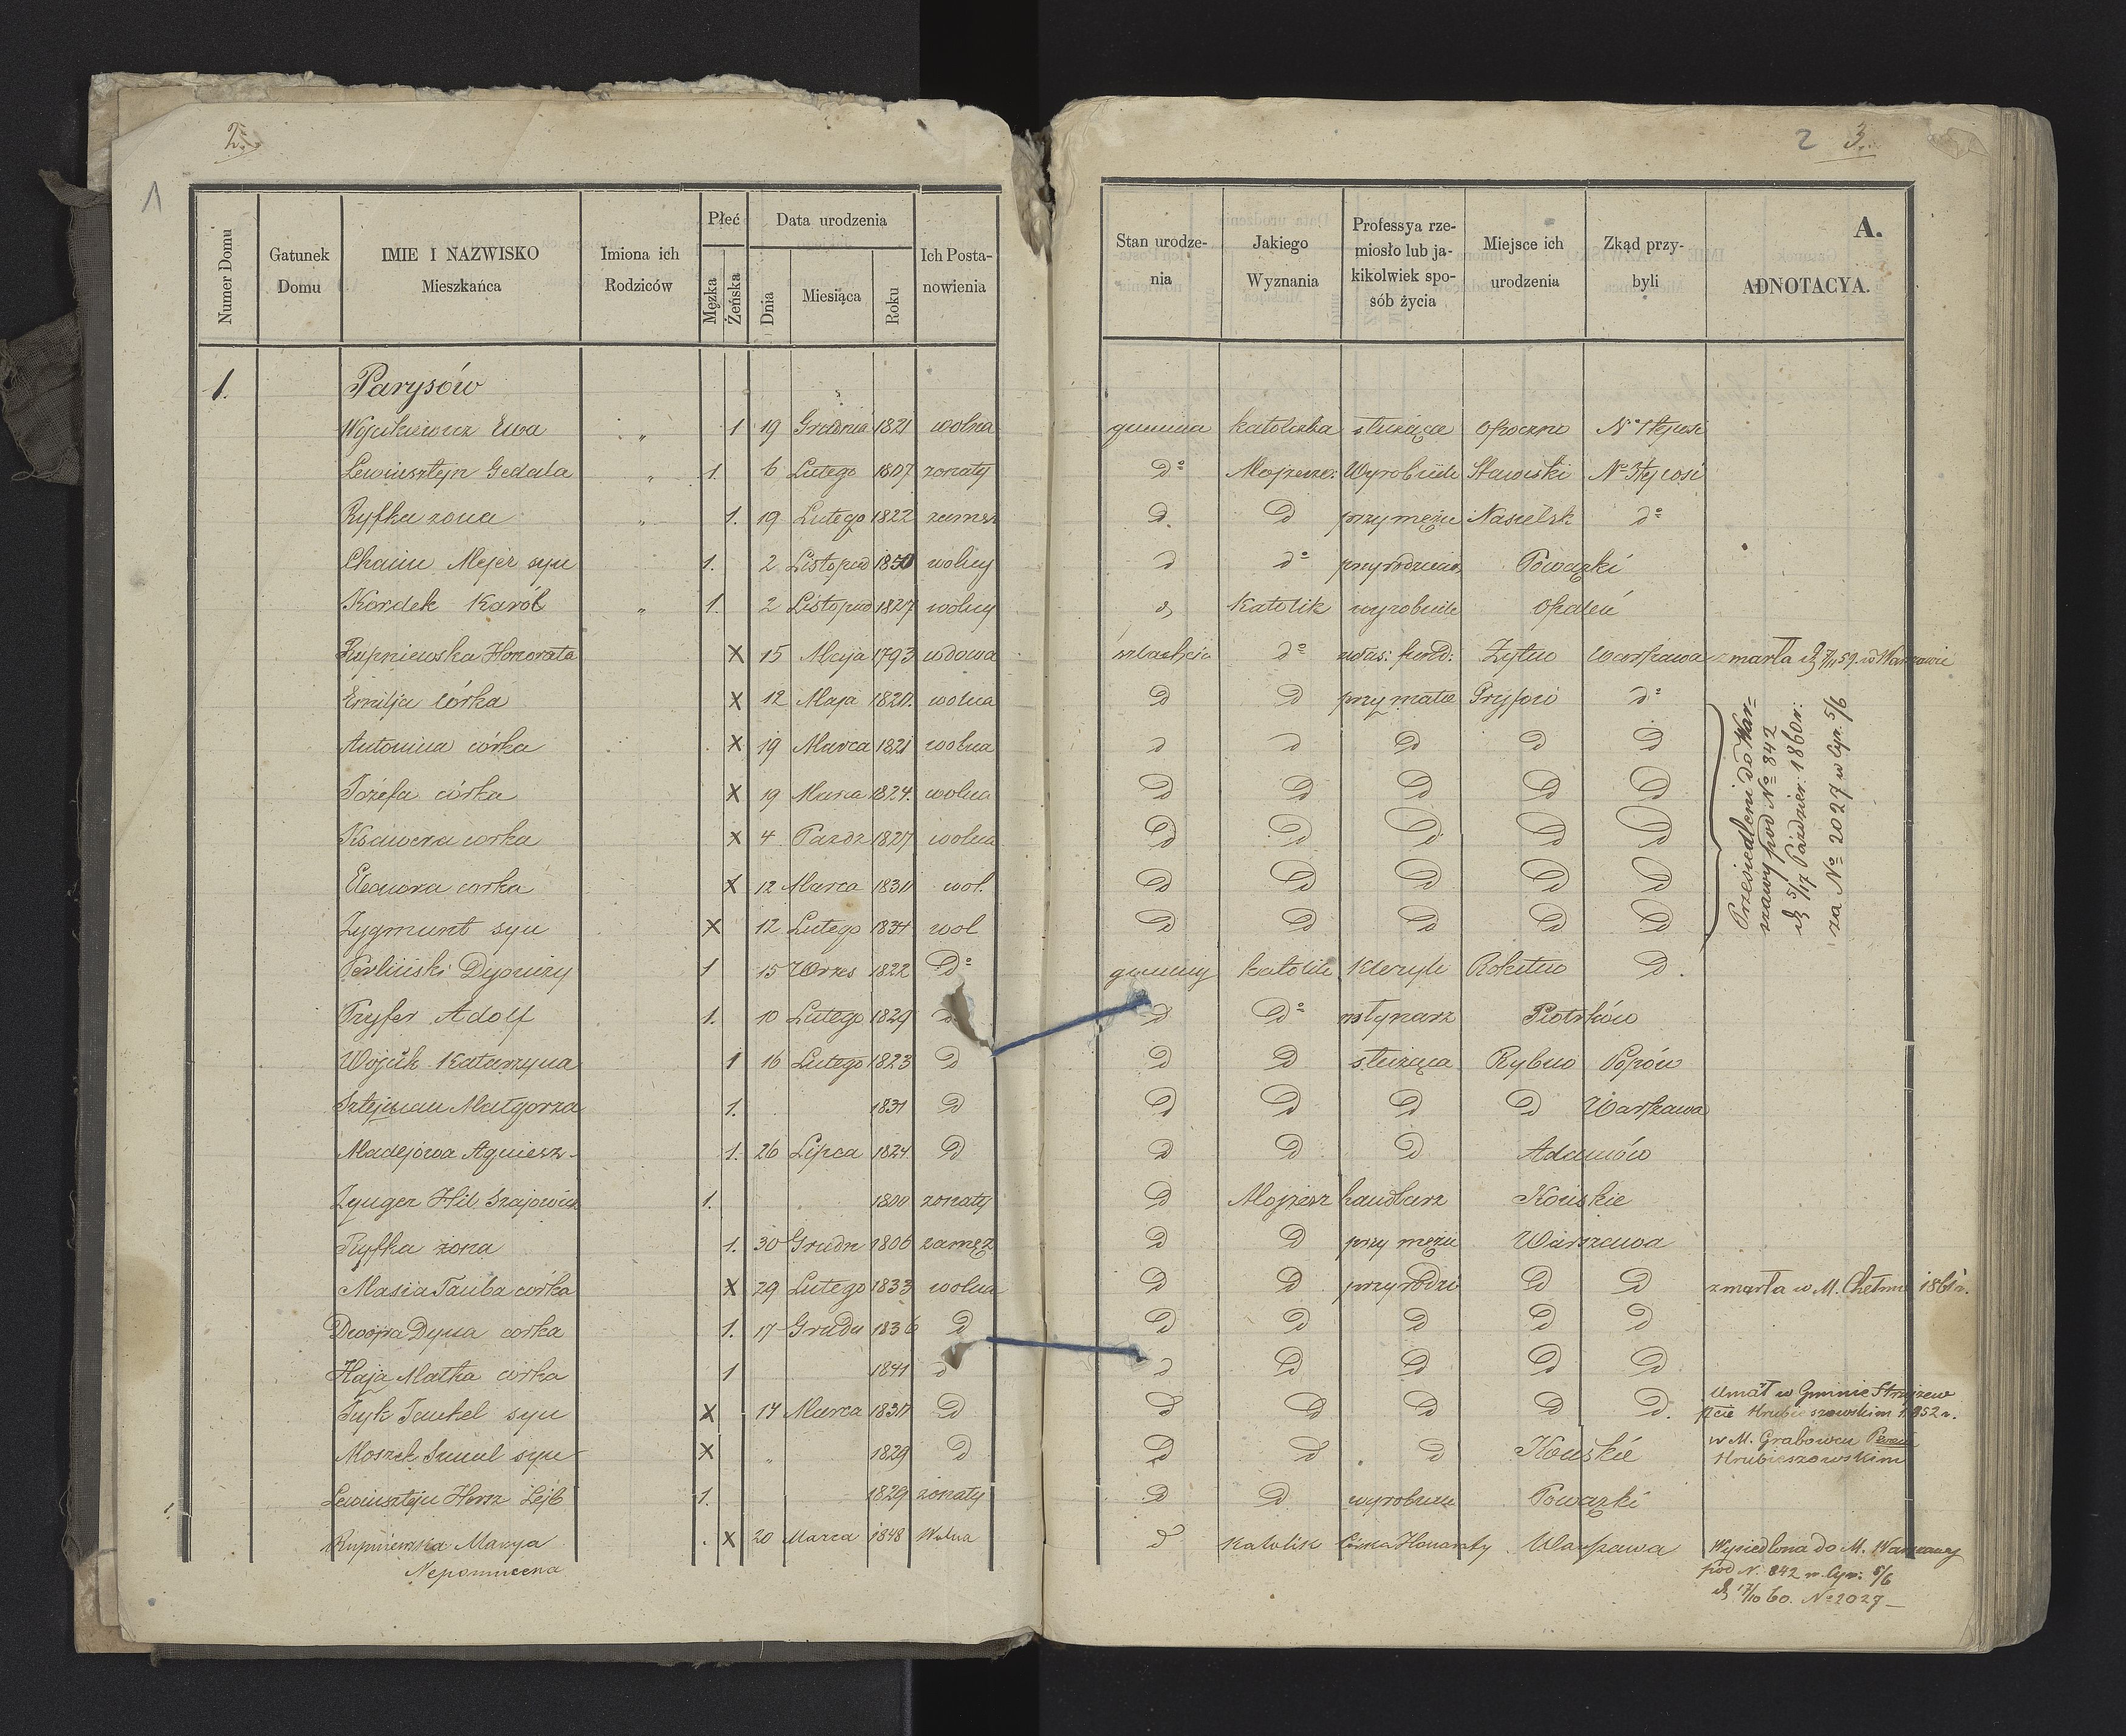 2.
1
Numer Domu
Gatunek Domu
IMIE I NAZWISKO Mieszkańca
Imiona ich Rodziców
Płeć
Męzka
Żeńska
Data urodzenia
Dnia
Miesiąca
Roku
Ich Postanowienia
1. Parysów
Ewa " 1 19 Grudnia 1821 wolna
Lewinsztejn Gedala " 1. 6 Lutego 1807 zonaty
Ryfka zona " 1. 19 Lutego 1822 zamęz
Chaim Mejer syn 1. 2 Listopad 1850 wolny
Kordek Karól " 1. 2 Listopad 1827 wolny
Rupniewska Honorata X 15 Maja 1793 wdowa
Emilja córka X 12 Maja 1820. wolna
Antonina córka X 19 Marca 1821 wolna
Józefa córka X 19 Marca 1824. wolna
Ksawera corka X 4 Pazdz 1827 wolna
Eleonora corka X 12 Marca 1830 wol.
Zygmunt syn X 12 Lutego 1834 wol
Dyonizy 1 15 Wrzes 1822 Do
Adolf 1. 10 Lutego 1829 d
Wojcik Katarzyna 1 16 Lutego 1823 D
Sztejman Małgorza 1. 1831 D
Madejowa Agniesz- 1. 26 Lipca 1824 D
Zynger Hil. Szajowicz 1. 1800 zonaty
Ryfka żona 1. 30 Grudn 1806 zamęz
Masia Tauba córka X 29 Lutego 1833 wolna
Dwojra Dyna corka 1. 17 Grudn 1836 D
Haja Małka córka 1 1841 d
Jankel syn X 14 Marca 1830 D
Moszek Szmul syn X " 1829 D
Lewinsztejn Hersz Lejb 1. 1829 zonaty
Rupniewska Marya X 20 Marca 1848 Wolna
Nepomucena
2 3.
Stan urodzenia
Jakiego Wyznania
Professya rzemiosło lub jakikolwiek sposób życia
Miejsce ich urodzenia
Zkąd przybyli
A.
ADNOTACYA.
gminna katoliczka służąca Opoczno
do Mojżesz: Wyrobnik Stawiski
d. D przy mężu Nasielsk do
d do przy rodzicach Powązki
d Katolik wyrobnik
szlachcic do Żytno Warszawa zmarła w Warszawie
D D przy matce do
d d D D D
D D D D D
D D D D D
D D D D D
D D D D D
Przesiedleni do War-
szawy pod No 842
d. 5/17 Paździer: 1860 r:
za No 2027 w Cyr. 5/6
gminny katolik Kleryk Rokitno D.
d do młynarz Piotrków
D D służąca Rybno Popów
D D D D Warszawa
D D D Adamów
D Mojżesz handlarz Końskie
D D przy mężu Warszawa
D D przy rodzi D D zmarła w M. Chełmie
D D D D D
d D D D D
d D D D D. Umarł w Gminie
Hrubieszowskim 1852 r.
D d d Końskie w M. Grabowcu
Hrubieszowskim
D D wyrobnik Powązki
d Katolik Córka Honoraty Warszawa Wysiedlona do M. Warszawy
pod N. 842 w Cyr: 5/6
d. 17/10 60. No 2027